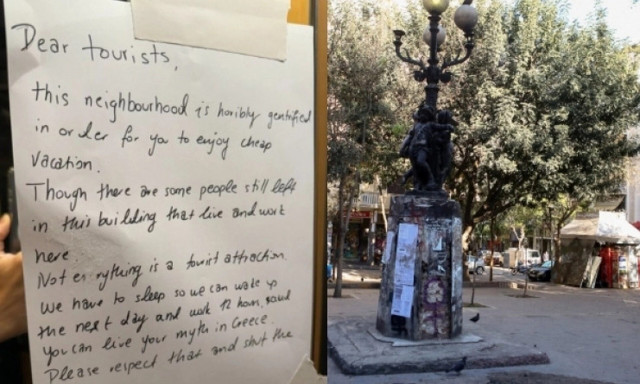 Dear tourists,
this neighbourhood is horibly gentrified
in order for you to enjoy cheap
vacation.
Though there are some people still left
in this building that live and work
here
Not everything is a tourist attraction.
We have to sleep so we can wake up
the next day and work 12 hours,
you can live your myth in Greece.
Please respect that and shut the